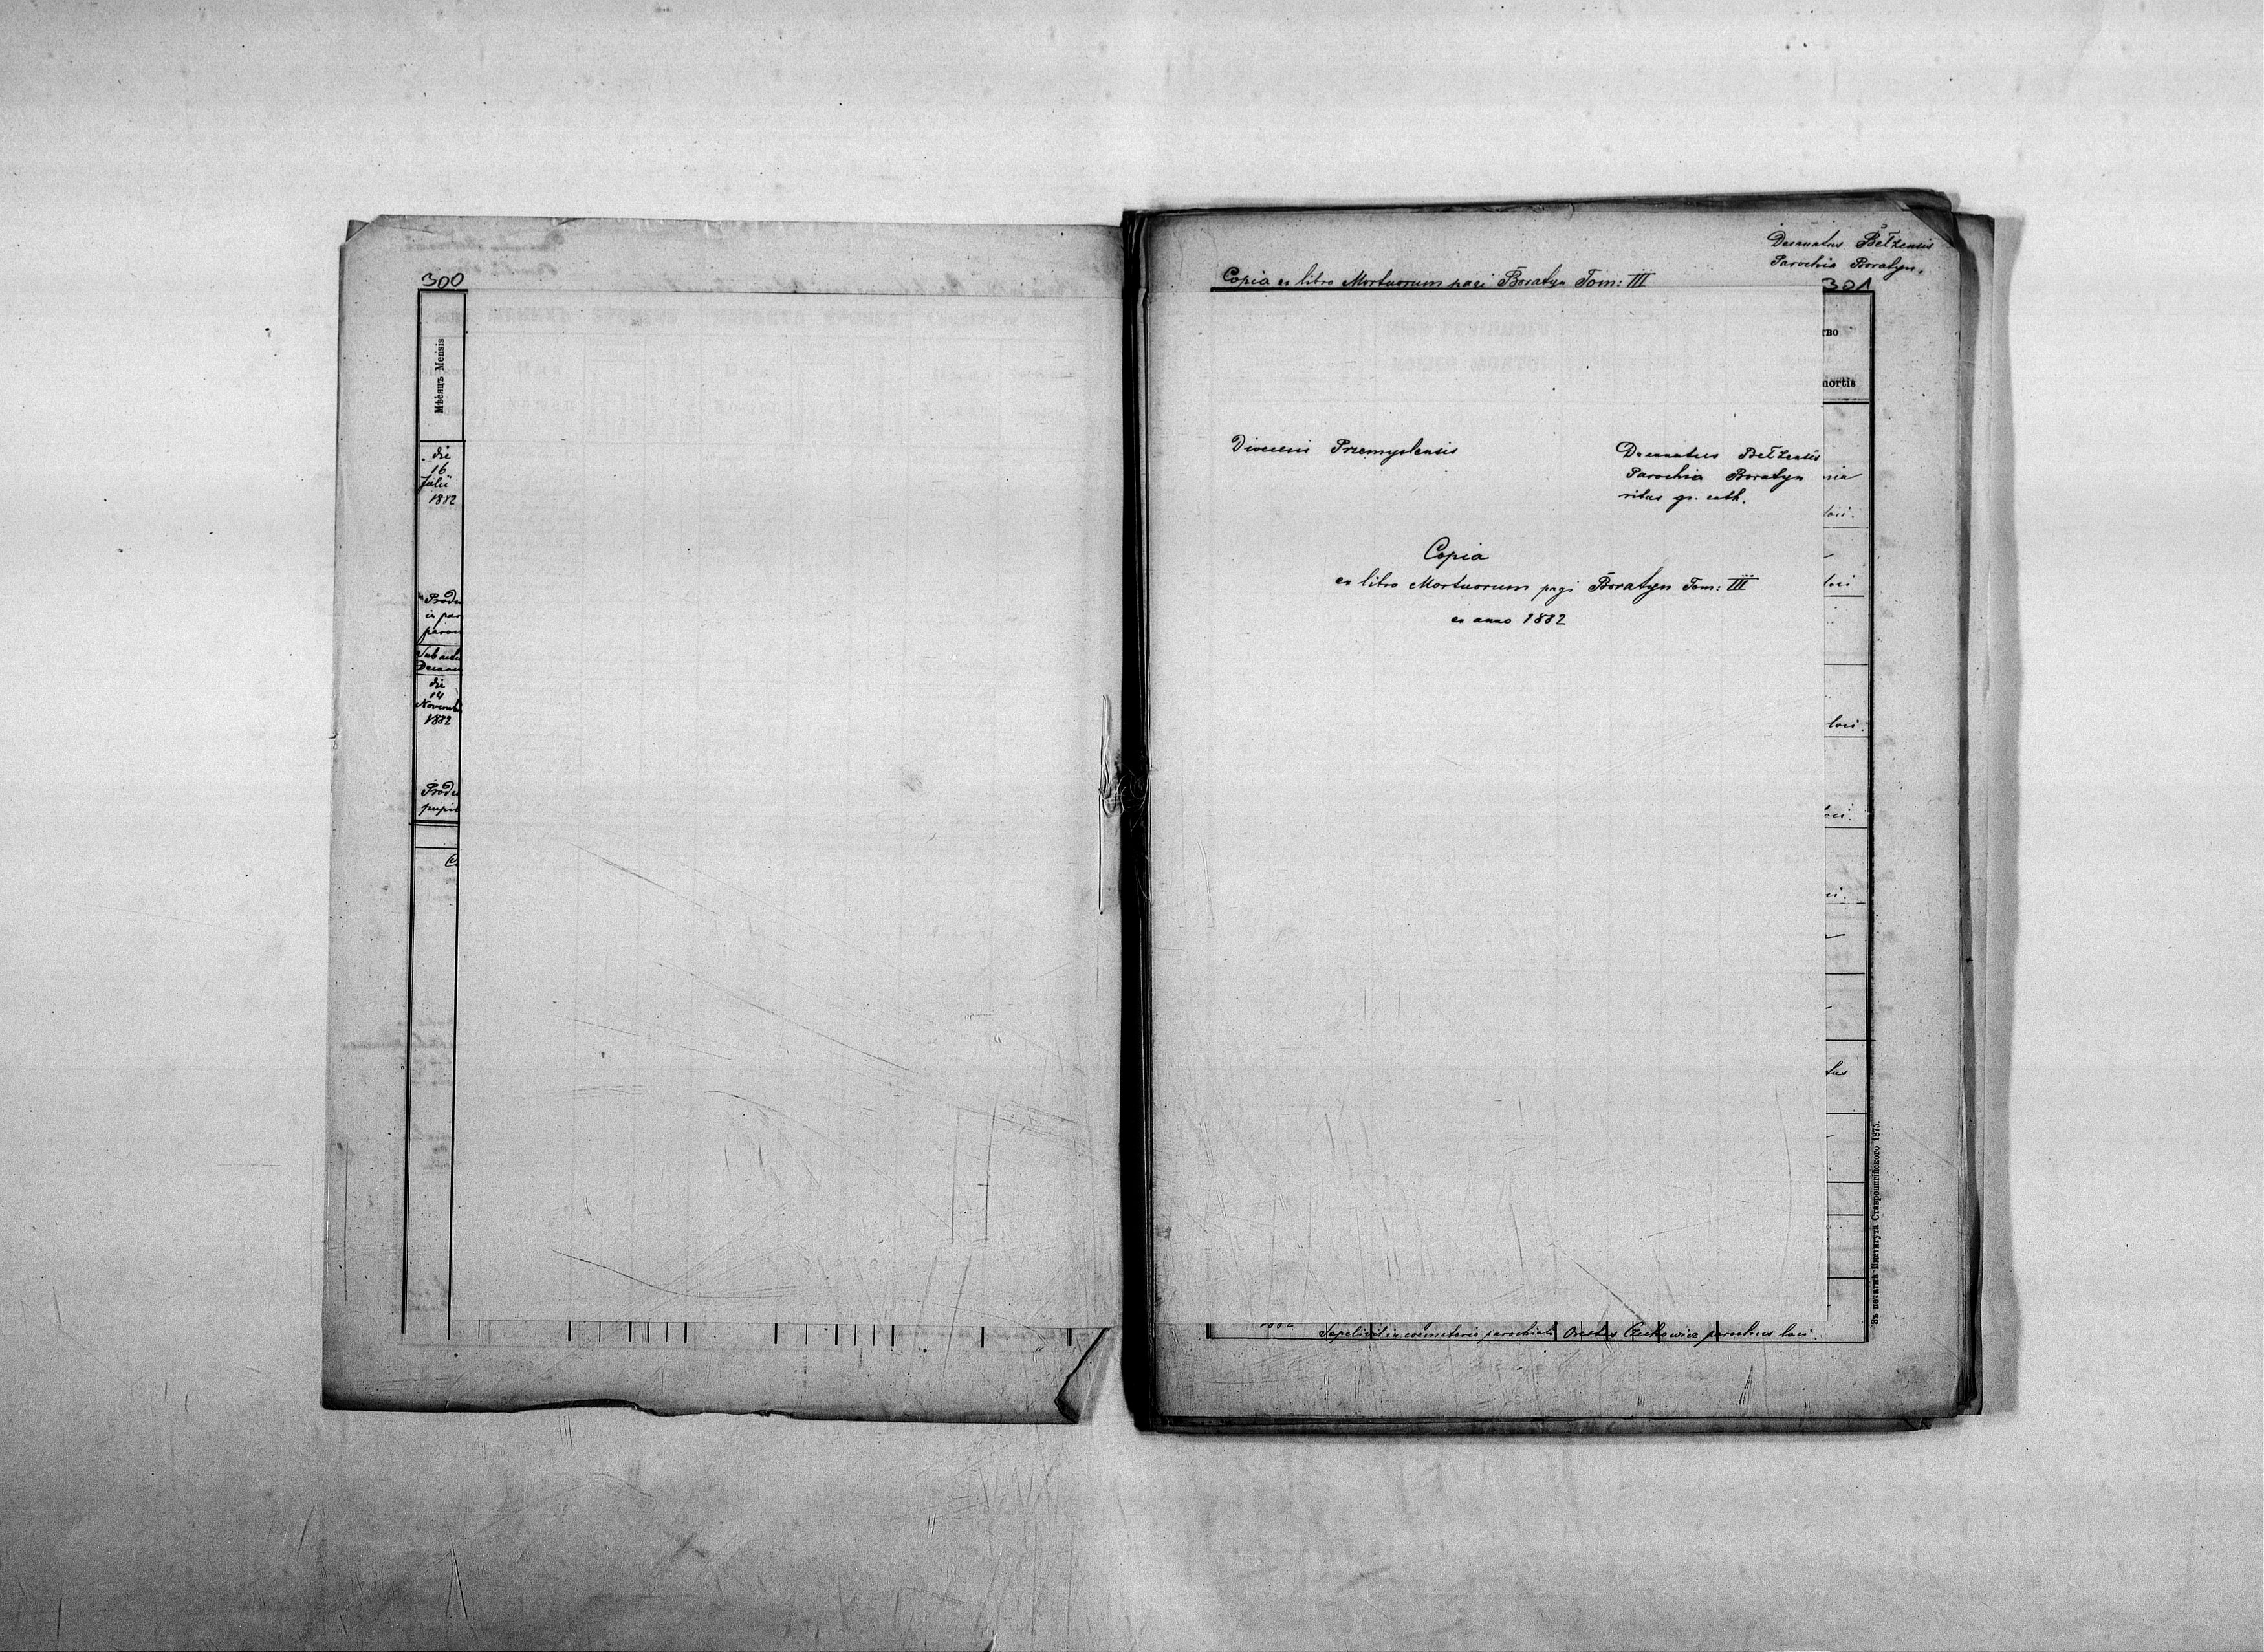 300
Мѣсяцъ Mensis
die
16
Julii
1882
in par
die
14
Novemb
1882
Decanatus Bełzensis
Parochia Boratyn.
Copia ex libro Mortuorum pagi Boratyn Tom: III
301
тво
mortis
Dioecesis Premyslensis
Decanatus Bełzensis
Parochia Boratyn
ritus gr. cath.
Copia
ex libro Mortuorum pagi Boratyn Tom: III
ex anno 1882
loci.
loci
loci.
Sepelivit in coemeterio parochiali Orestes parochus loci.
Зъ печатнѣ Института Ставропигійского 1875.